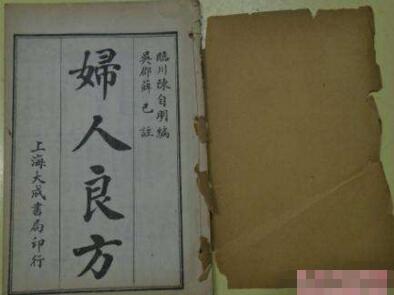 臨川陳自明編
吳郡薛己註
婦人良方
上海大成書局印行